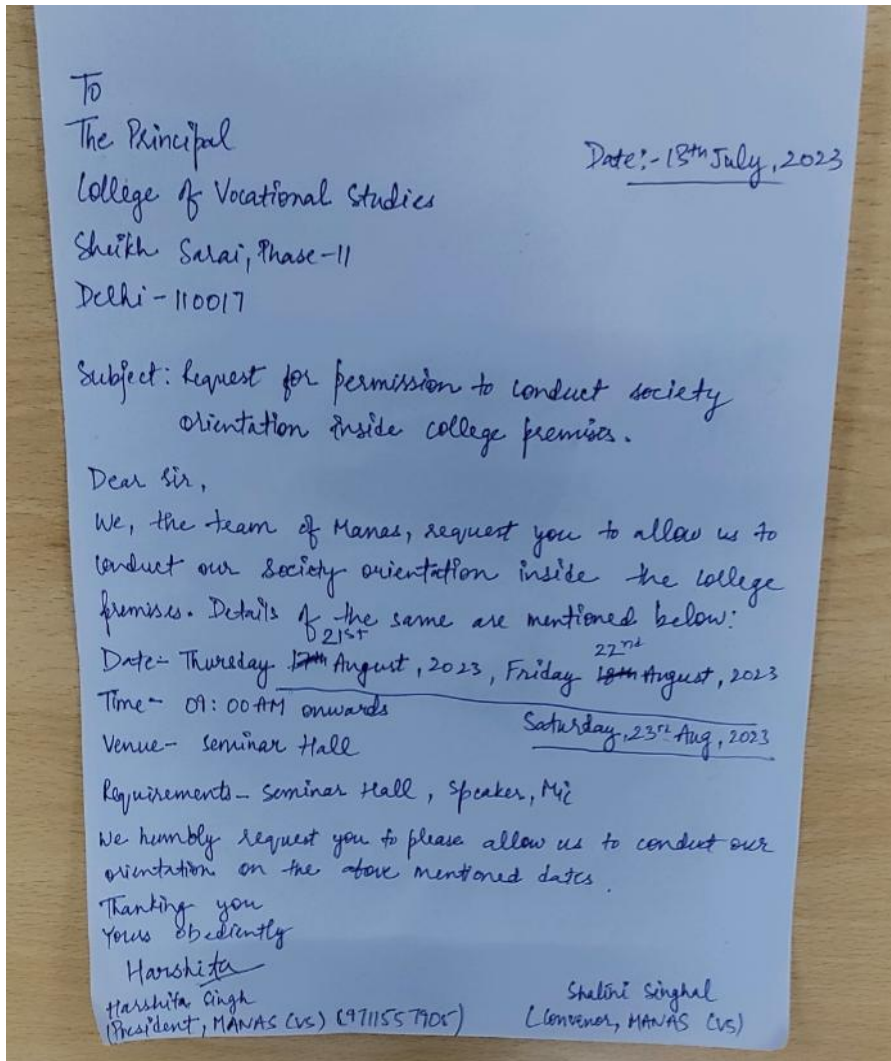 To
The Principal
Date:- 18th July, 2023
College of Vocational Studies
Sheikh Sarai, Phase-11
Delhi - 110017
Subject: Request for permission to conduct society
orientation inside college premises.
Dear Sir,
We, the team of Manas, request you to allow us to
conduct our society orientation inside the college
premises. Details of the same are mentioned below:
21st 22nd
Date- Thursday 17th August, 2023, Friday 18th August, 2023
Time- 09:00 AM onwards
Saturday, 23rd Aug, 2023
Venue- Seminar Hall
Requirements- Seminar Hall, Speaker, Mic
We humbly request you to please allow us to conduct our
orientation on the above mentioned dates.
Thanking you
Yours obediently
Harshita
Harshita Singh
(President, MANAS CVS) (9711557905)
Shalini Singhal
(Convenor, MANAS CVS)